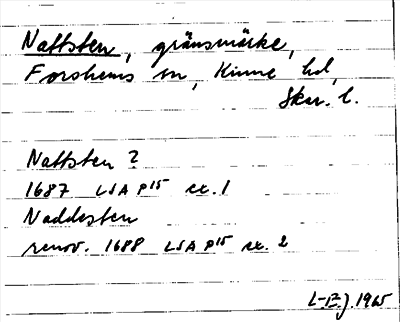 Nattsten, gränsmärke,
Forshems sn, Kinne hd,
Skar. l.
Nattsten ?
1687 LSA P15 ex. 1
Naddesten
renov. 1688 LSA P15 ex. 2
L-E.J. 1965